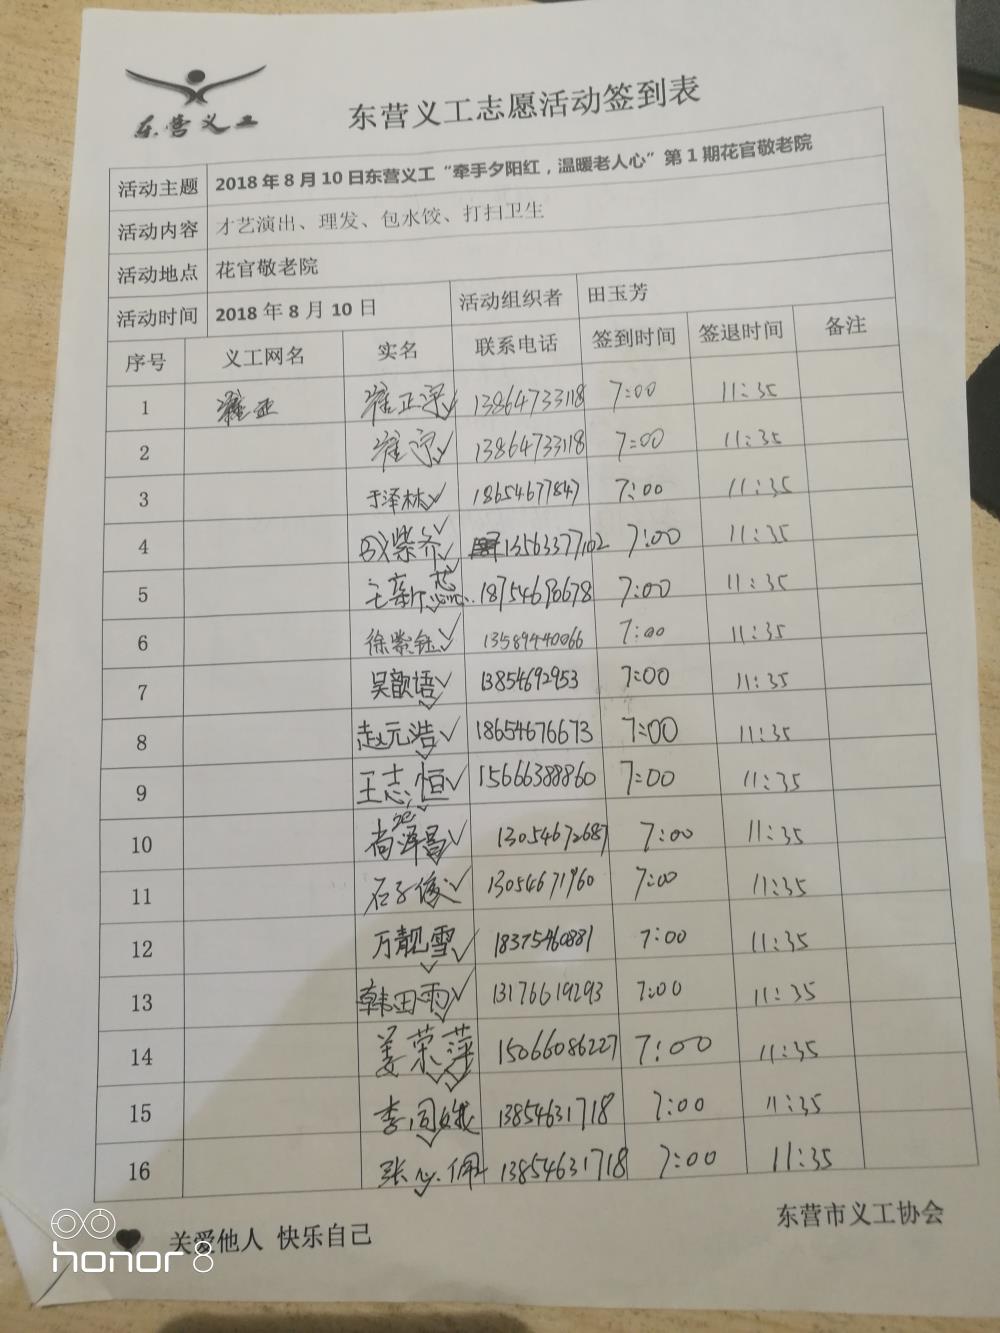 东营义工
东营义工志愿活动签到表
活动主题 2018年8月10日东营义工“牵手夕阳红，温暖老人心”第1期花官敬老院
活动内容 才艺演出、理发、包水饺、打扫卫生
活动地点 花官敬老院
活动时间 2018年8月10日 活动组织者 田玉芳
序号 义工网名 实名 联系电话 签到时间 签退时间 备注
1 崔正 崔正宇 13864733118 7:00 11:35
2 崔宁 13864733118 7:00 11:35
3 于泽林 18654677847 7:00 11:35
4 13563377102 7:00 11:35
5 王新蕊 18754696678 7:00 11:35
6 徐紫钰 13589440066 7:00 11:35
7 吴歆语 13854692953 7:00 11:35
8 赵元浩 18654676673 7:00 11:35
9 王志恒 15666388860 7:00 11:35
10 尚泽昌 13054672687 7:00 11:35
11 石子俊 13054671960 7:00 11:35
12 万靓雪 18375460881 7:00 11:35
13 韩田雨 13176619293 7:00 11:35
14 姜荣萍 15066086227 7:00 11:35
15 李同娥 13854631718 7:00 11:35
16 张心佩 13854631718 7:00 11:35
关爱他人 快乐自己
东营市义工协会
honor 8